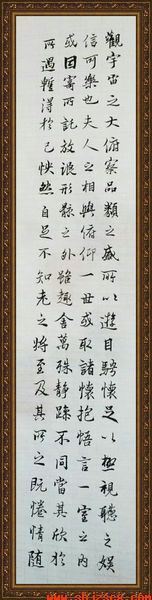 觀宇宙之大俯察品類之盛所以遊目騁懷足以極視聽之娛
信可樂也夫人之相與俯仰一世或取諸懷抱悟言一室之內
或因寄所託放浪形骸之外雖趣舍萬殊静躁不同當其欣於
所遇暫得於己怏然自足不知老之將至及其所之既倦情隨